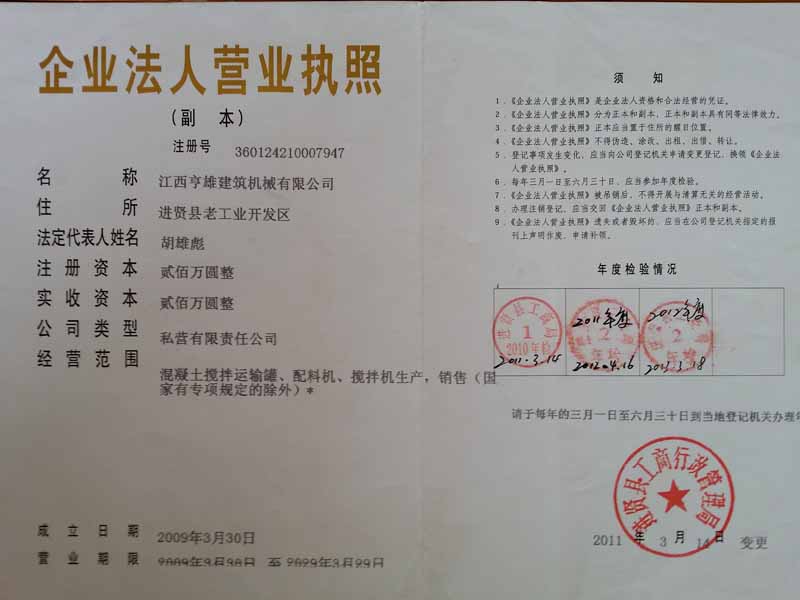 企业法人营业执照
（副 本）
注册号 360124210007947
名 称 江西亨雄建筑机械有限公司
住 所 进贤县老工业开发区
法定代表人姓名 胡雄彪
注 册 资 本 贰佰万圆整
实 收 资 本 贰佰万圆整
公 司 类 型 私营有限责任公司
经 营 范 围
混凝土搅拌运输罐、配料机、搅拌机生产，销售（国
家有专项规定的除外）*
成 立 日 期 2009年3月30日
营 业 期 限 2009年3月30日 至 2029年3月29日
须 知
1．《企业法人营业执照》是企业法人资格和合法经营的凭证。
2．《企业法人营业执照》分为正本和副本，正本和副本具有同等法律效力。
3．《企业法人营业执照》正本应当置于住所的醒目位置。
4．《企业法人营业执照》不得伪造、涂改、出租、出借、转让。
5．登记事项发生变化，应当向公司登记机关申请变更登记，换领《企业法
人营业执照》。
6．每年三月一日至六月三十日，应当参加年度检验。
7．《企业法人营业执照》被吊销后，不得开展与清算无关的经营活动。
8．办理注销登记，应当交回《企业法人营业执照》正本和副本。
9．《企业法人营业执照》遗失或者毁坏的，应当在公司登记机关指定的报
刊上声明作废，申请补领。
年度检验情况
进贤县工商局 1 2010年检
2011·3·14
2011年度
2 年检
2012.4.16
2012年度
2 年检
2013.3.18
请于每年的三月一日至六月三十日到当地登记机关办理年
进贤县工商行政管理局
2011 年 3 月 14 日 变更